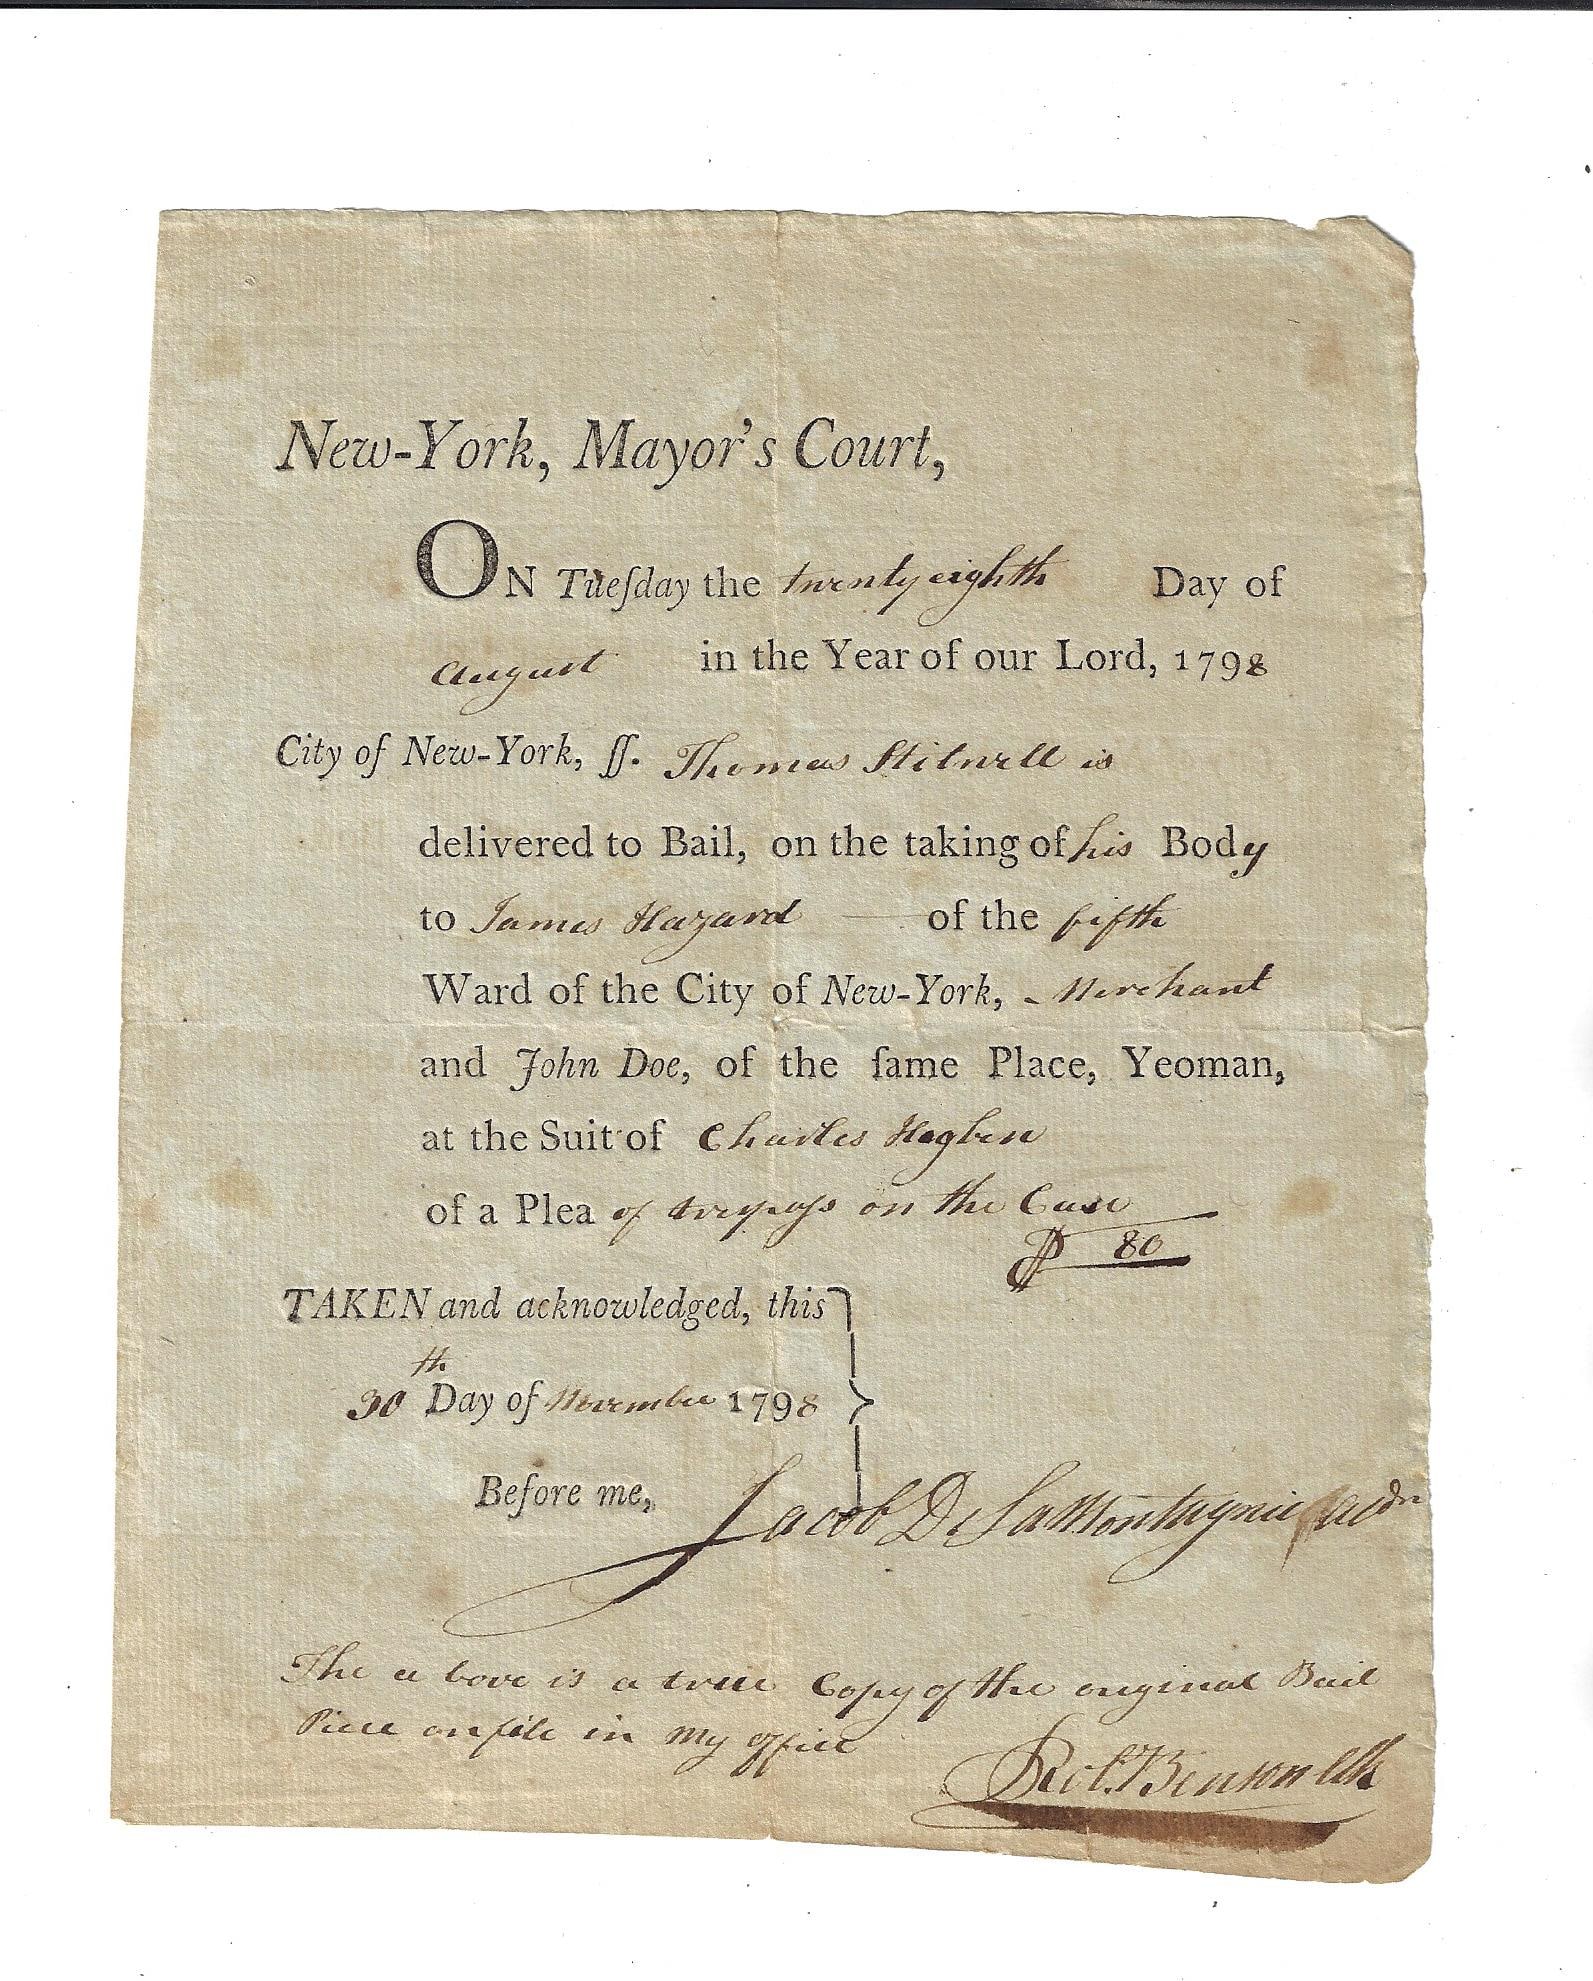 New-York, Mayor's Court,
ON Tueſday the twenty eighth Day of
August in the Year of our Lord, 1798
City of New-York, ſſ. Thomas Stilwell is
delivered to Bail, on the taking of his Body
to James Hazard of the fifth
Ward of the City of New-York, Merchant
and John Doe, of the ſame Place, Yeoman,
at the Suit of Charles Hogben
of a Plea of treſpaſs on the Case
$ 80
TAKEN and acknowledged, this
30th Day of November 1798
Before me, Jacob De LaMontagnie
The above is a true Copy of the original Bail
Piece on file in my office
Rob. Benson Clk